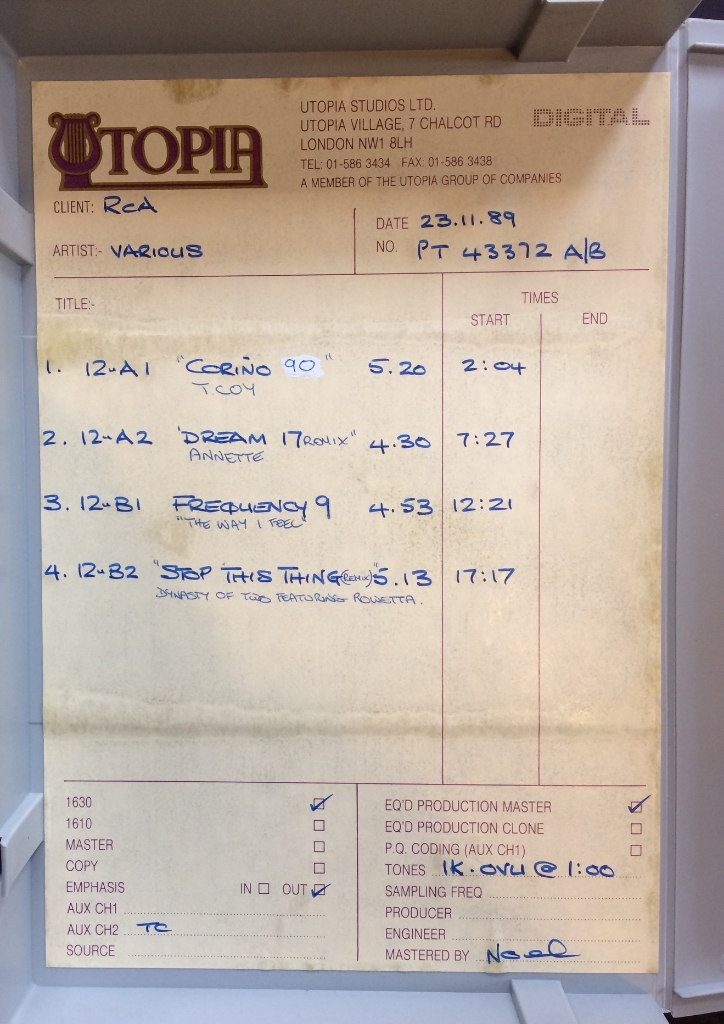 UTOPIA
UTOPIA STUDIOS LTD.
UTOPIA VILLAGE, 7 CHALCOT RD
LONDON NW1 8LH
TEL: 01-586 3434 FAX: 01-586 3438
A MEMBER OF THE UTOPIA GROUP OF COMPANIES
DIGITAL
CLIENT: RCA
ARTIST:- VARIOUS
DATE 23.11.89
NO. PT 43372 A/B
TITLE:-
TIMES
START END
1. 12"A1 "CORIÑO 90" 5.20 2:04
T COY
2. 12"A2 "DREAM 17 REMIX" 4.30 7:27
ANNETTE
3. 12"B1 FREQUENCY 9 4.53 12:21
"THE WAY I FEEL"
4. 12"B2 "STOP THIS THING (REMIX)" 5.13 17:17
DYNASTY OF TWO FEATURING ROWETTA.
1630
1610
MASTER
COPY
EMPHASIS IN OUT
AUX CH1
AUX CH2 TC
SOURCE
EQ'D PRODUCTION MASTER
EQ'D PRODUCTION CLONE
P.Q. CODING (AUX CH1)
TONES 1K.OVU @ 1:00
SAMPLING FREQ
PRODUCER
ENGINEER
MASTERED BY Noel